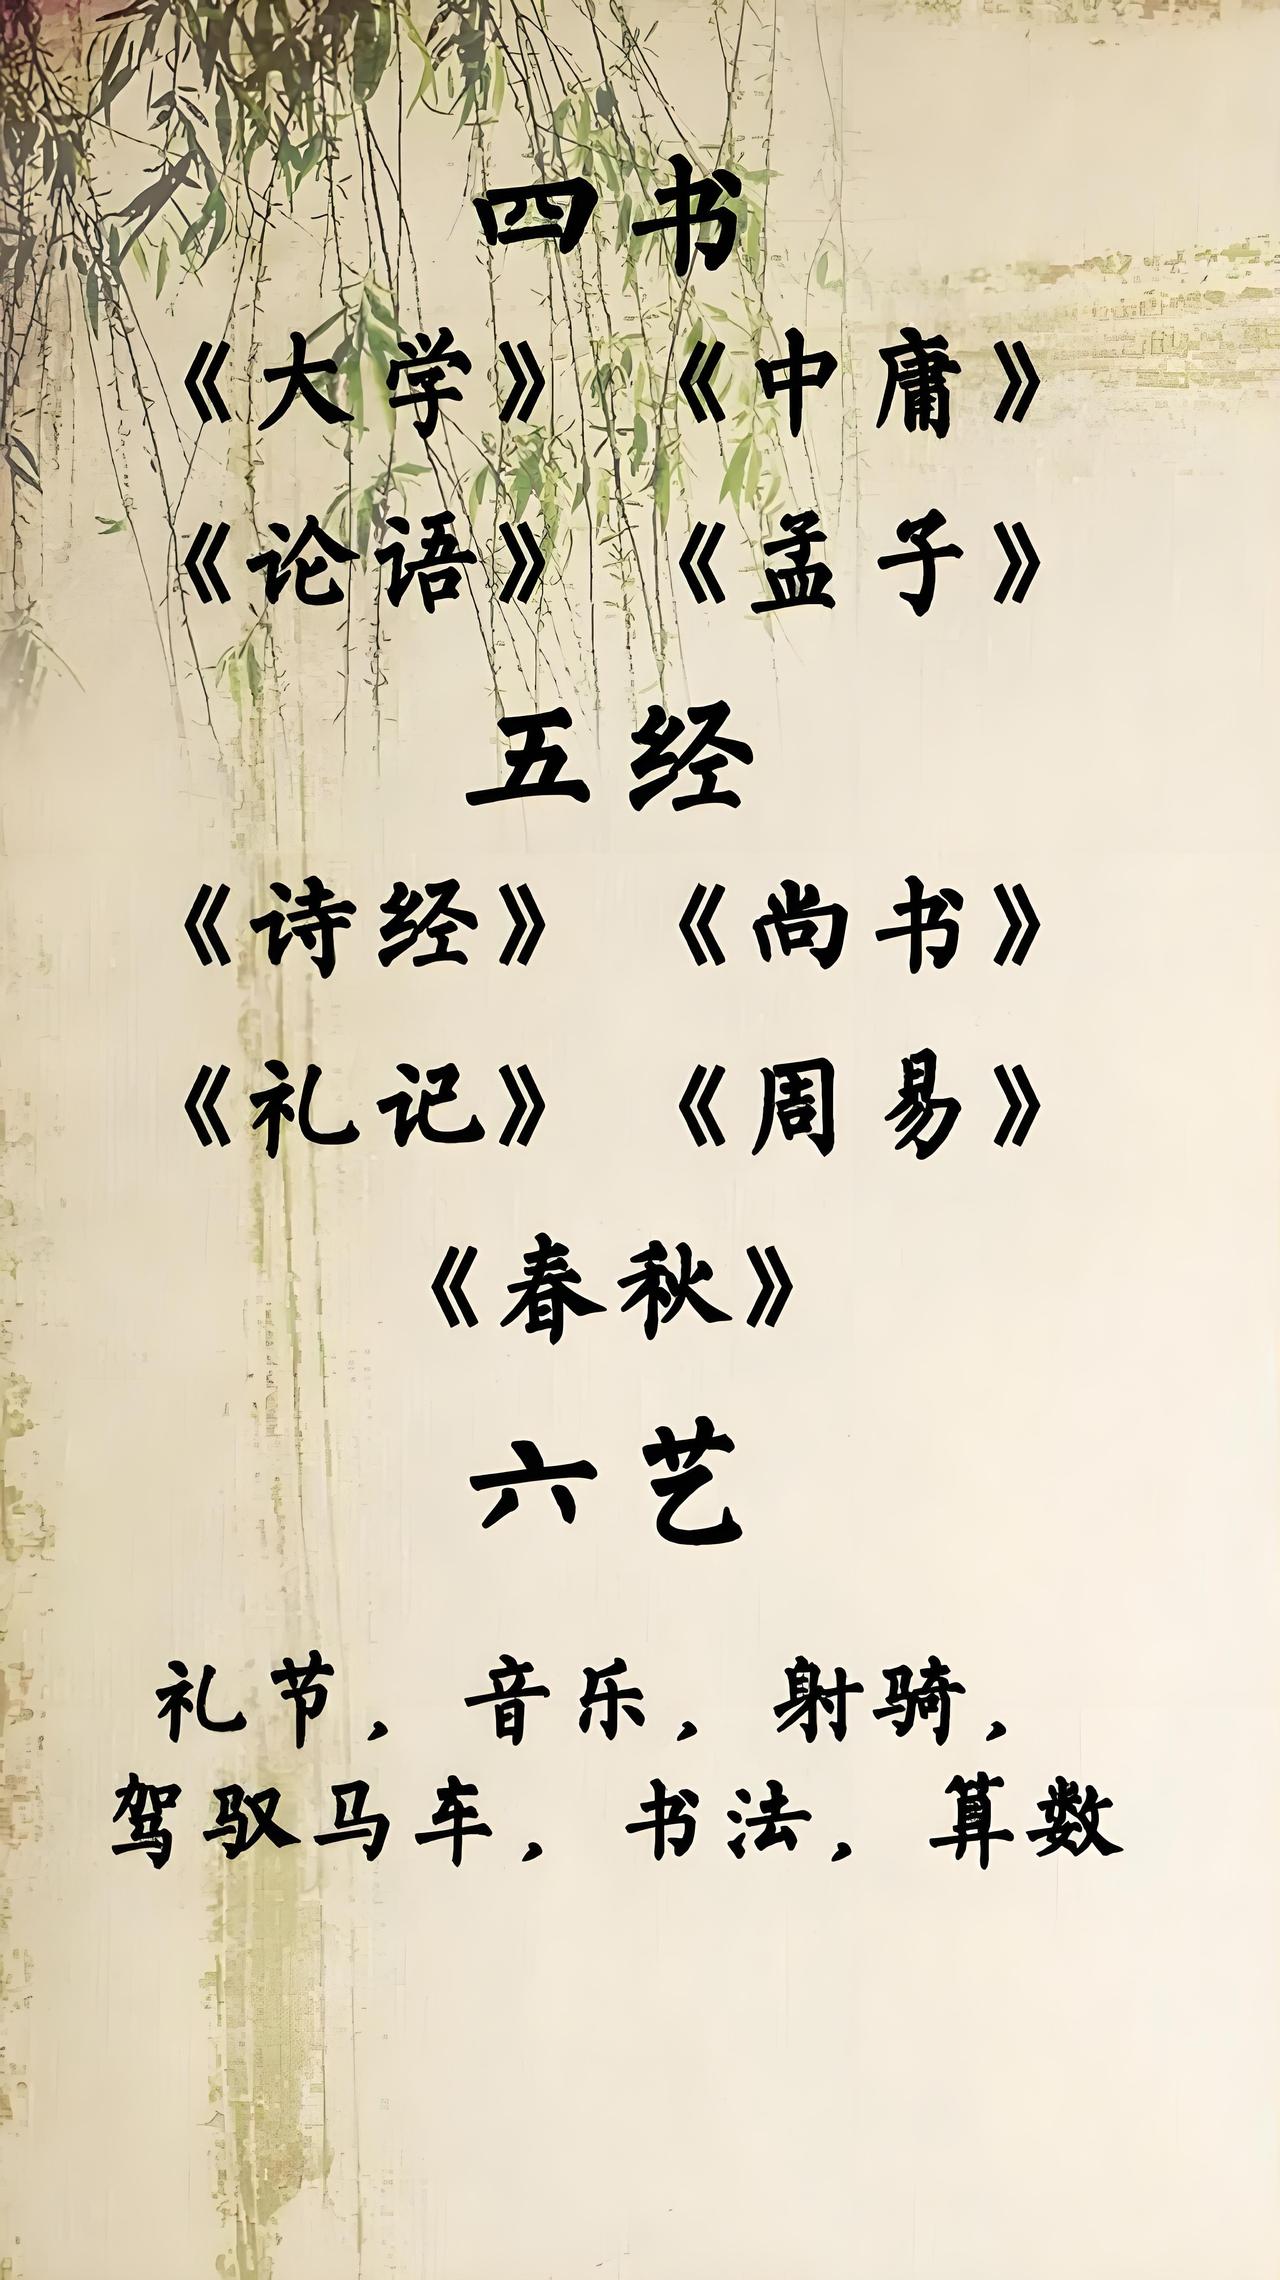 四书
《大学》 《中庸》
《论语》 《孟子》
五经
《诗经》 《尚书》
《礼记》 《周易》
《春秋》
六艺
礼节，音乐，射骑，
驾驭马车，书法，算数